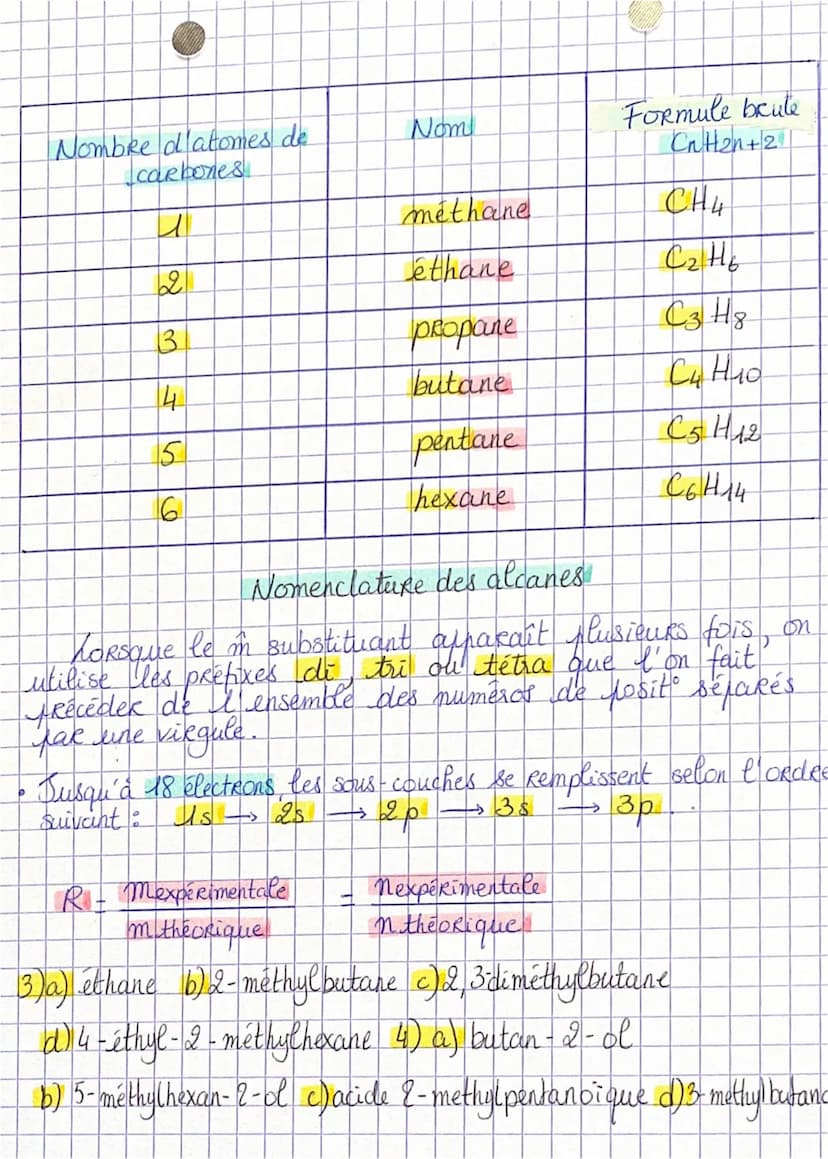 Nombre d'atomes de carbones
Nom
Formule brute CnH2n+2
1 méthane CH4
2 éthane C2H6
3 propane C3H8
4 butane C4H10
5 pentane C5H12
6 hexane C6H14
Nomenclature des alcanes
Lorsque le m̂ substituant apparaît plusieurs fois, on
utilise les préfixes di, tri ou tétra que l'on fait
précéder de l'ensemble des numéros de posit° séparés
par une virgule.
• Jusqu'à 18 électrons, les sous-couches se remplissent selon l'ordre
suivant : 1s → 2s → 2p → 3s → 3p.
R = mexpérimentale / m théorique = nexpérimentale / n théorique
3)a) éthane b) 2-méthylbutane c) 2,3-diméthylbutane
d) 4-éthyl-2-méthylhexane 4) a) butan-2-ol
b) 5-méthylhexan-2-ol c) acide 2-methylpentanoïque d) 3-methylbutan